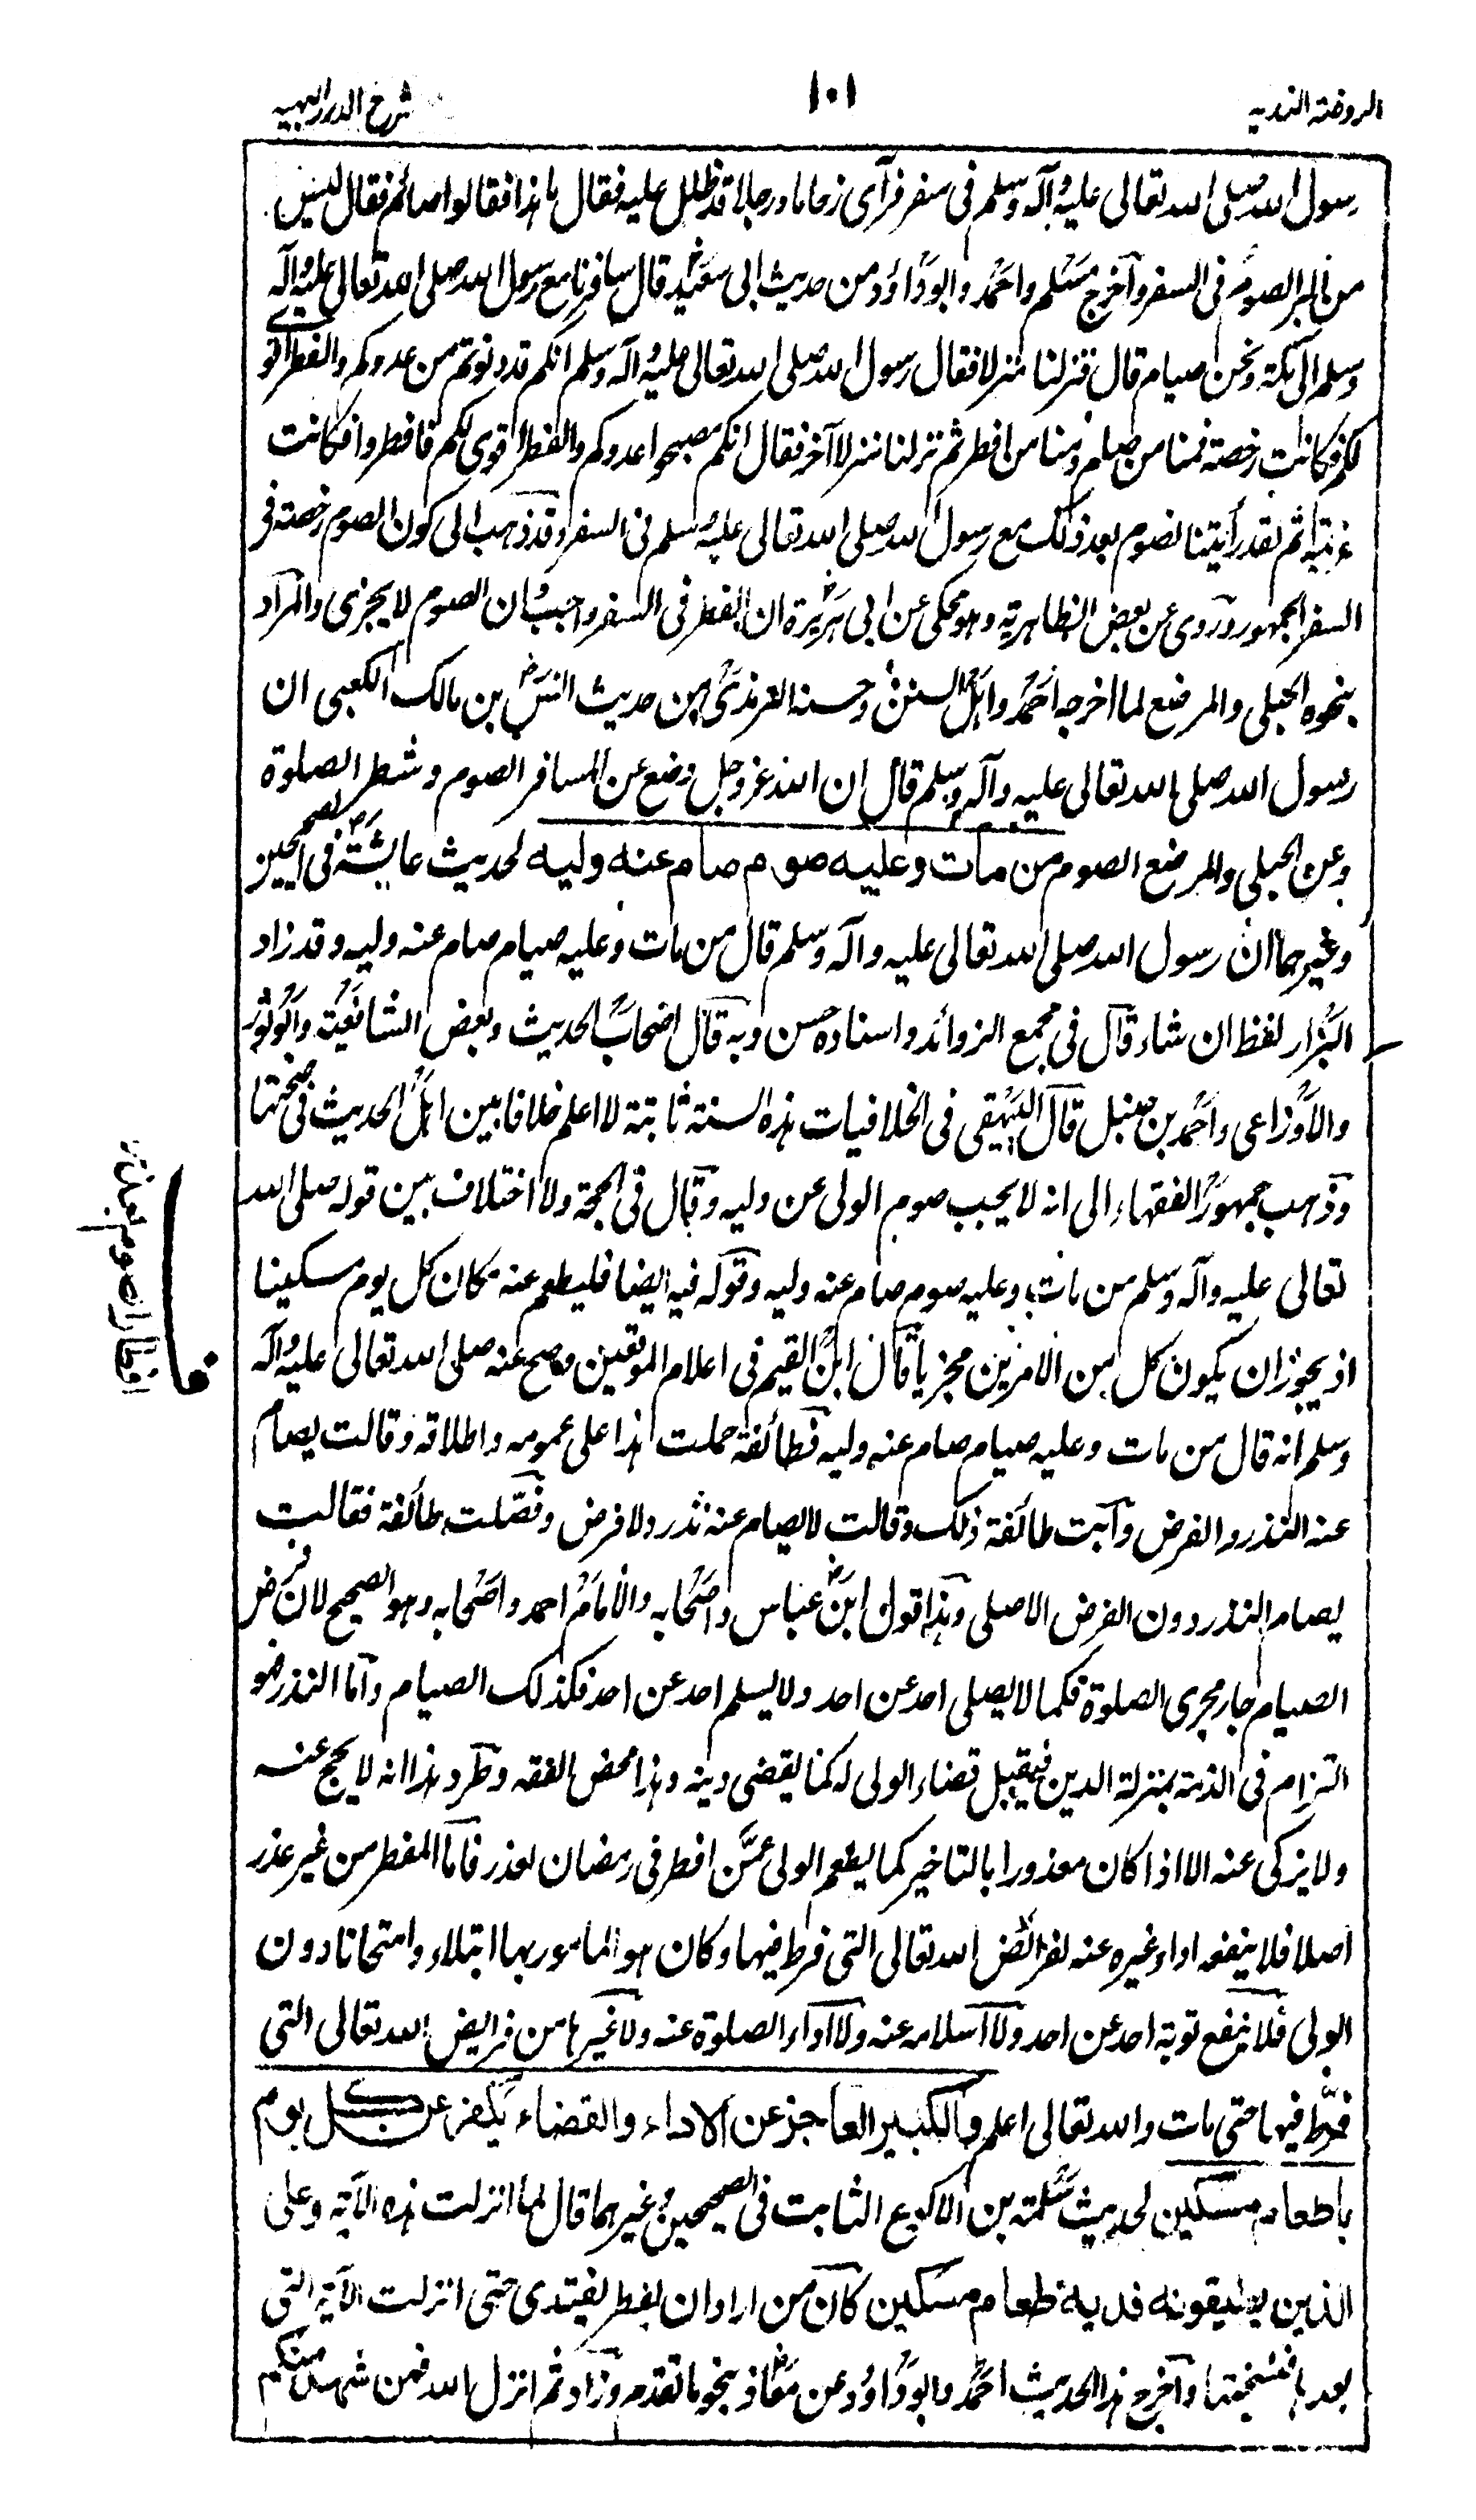 الروضة الندية
١٠١
شرح الدرر البهية
رسول الله صلى الله تعالى عليه وآله وسلم فى سفر فرآى زحاما ورجلا قد ظلل عليه فقال ما هذا فقالوا صائم فقال ليس
من البر الصوم فى السفر وآخرج مسلم واحمد وابوداؤد من حديث ابى سعيد قال سافرنا مع رسول الله صلى الله تعالى عليه وآله
وسلم الى مكة ونحن صيام قال فنزلنا منزلا فقال رسول الله صلى الله تعالى عليه وآله وسلم انكم قد دنوتم من عدوكم والفطر اقوى
لكم فكانت رخصة فمنا من صام ومنا من افطر ثم نزلنا منزلا آخر فقال انكم مصبحوا عدوكم والفطر اقوى لكم فافطروا فكانت
عزيمة ثم لقد رأيتنا نصوم بعد ذلك مع رسول الله صلى الله تعالى عليه وسلم فى السفر وقد ذهب الى كون الصوم رخصة فى
السفر الجمهور وروى عن بعض الظاهرية وهو محكى عن ابى هريرة ان الفطر فى السفر واجب وان الصوم لا يجزى والمراد
بنحوه الحبلى والمرضع لما اخرجه احمد واهل السنن وحسنه الترمذى من حديث انس بن مالك الكعبى ان
رسول الله صلى الله تعالى عليه وآله وسلم قال ان الله عز وجل وضع عن المسافر الصوم وشطر الصلوة
وعن الحبلى والمرضع الصوم من مات وعليه صوم صام عنه وليه لحديث عايشة فى الصحيحين
وغيرهما ان رسول الله صلى الله تعالى عليه وآله وسلم قال من مات وعليه صيام صام عنه وليه وقد زاد
البزار لفظ ان شاء قال فى مجمع الزوائد واسناده حسن وبه قال اصحاب الحديث وبعض الشافعية وابوثور
والاوزاعى واحمد بن حنبل قال البيهقى فى الخلافيات هذه السنة ثابتة لا اعلم خلافا بين اهل الحديث فى صحتها
وذهب جمهور الفقهاء الى انه لا يجب صوم الولى عن وليه وقال فى الحجة ولا اختلاف بين قوله صلى الله
تعالى عليه وآله وسلم من مات وعليه صوم صام عنه وليه وقوله فيه ايضا فليطعم عنه مكان كل يوم مسكينا
اذ يجوز ان يكون كل من الامرين مجزيا قال ابن القيم فى اعلام الموقعين وصح عنه صلى الله تعالى عليه وآله
وسلم انه قال من مات وعليه صيام صام عنه وليه فطائفة حملت هذا على عمومه واطلاقه وقالت يصام
عنه النذر والفرض وآبت طائفة ذلك وقالت لا يصام عنه نذر ولا فرض وفصلت طائفة فقالت
يصام النذر دون الفرض الاصلى وهذا قول ابن عباس واصحابه والامام احمد واصحابه وهو الصحيح لان فرض
الصيام جار مجرى الصلوة فكما لا يصلى احد عن احد ولا يسلم احد عن احد فكذلك الصيام وآما النذر فهو
التزام فى الذمة بمنزلة الدين فيقبل قضاء الولى له كما يقضى دينه وهذا محض الفقه وطرد هذا انه لا يحج عنه
ولا يزكى عنه الا اذا كان معذورا بالتاخير كما يطعم الولى عمن افطر فى رمضان لعذر فاما المفطر من غير عذر
اصلا فلا ينفعه اداء غيره عنه لفرائض الله تعالى التى فرط فيها وكان هو المامور بها ابتلاء وامتحانا دون
الولى فلا ينفع توبة احد عن احد ولا اسلامه عنه ولا اداء الصلوة عنه ولا غيرها من فرايض الله تعالى التى
فرط فيها حتى مات والله تعالى اعلم والكبير العاجز عن الاداء والقضاء يكفر عن كل يوم
باطعام مسكين لحديث سلمة بن الاكوع الثابت فى الصحيحين وغيرهما قال لما انزلت هذه الآية وعلى
الذين يطيقونه فدية طعام مسكين كان من اراد ان يفطر يفتدى حتى انزلت الآية التى
بعدها فنسختها وآخرج هذا الحديث احمد وابوداؤد عن معاذ بنحو ما تقدم وزاد ثم انزل الله فمن شهد منكم